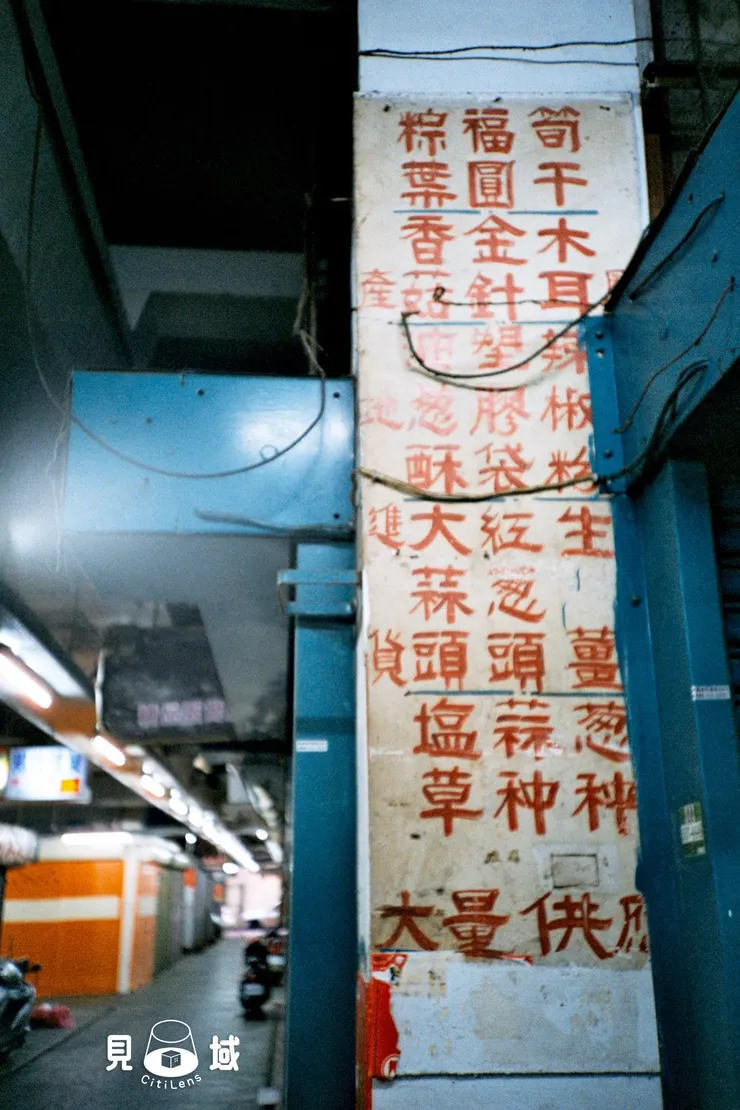 筍干
木耳
辣椒粉
生薑
葱种
福圓
金針
塑膠袋
紅葱頭
蒜种
粽葉
香菇
油葱酥
大蒜頭
塩草
產地進貨
大量供
見域
CitiLens